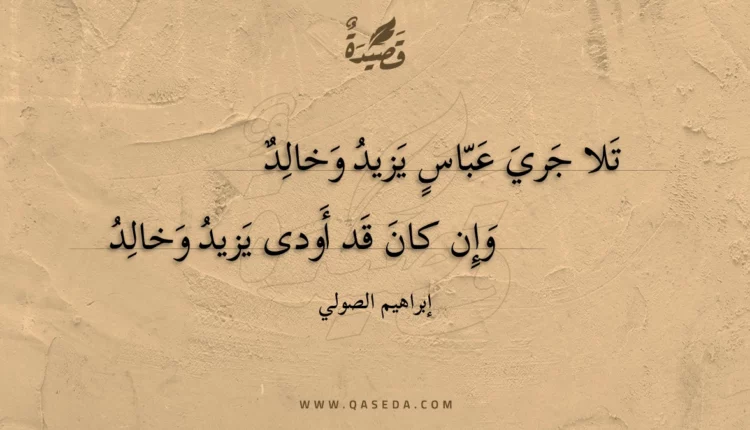 قَصِيدَةٌ
تَلا جَريَ عَبّاسٍ يَزيدُ وَخالِدٌ
وَإِن كانَ قَد أَودى يَزيدُ وَخالِدُ
إبراهيم الصولي
WWW.QASEDA.COM